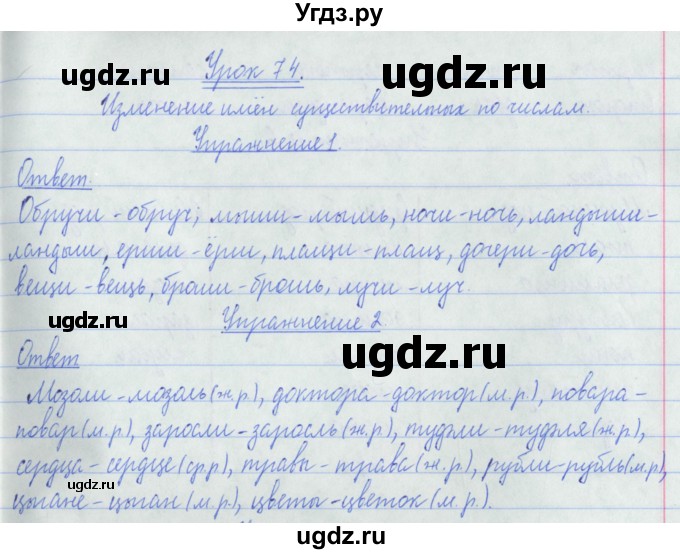 Угдз.ру
Урок 74.
ugdz.ru
ugdz.ru
Изменение имён существительных по числам.
Упражнение 1.
Ответ.
Обручи - обруч, мыши - мышь, ночи - ночь, ландыши -
ландыш, ерши - ёрш, плащи - плащ, дочери - дочь,
вещи - вещь, броши - брошь, лучи - луч.
ugdz.ru
Упражнение 2
ugdz.ru
Ответ
Мозоли - мозоль (ж.р.), доктора - доктор (м.р.), повара -
повар (м.р.), заросли - заросль (ж.р.), туфли - туфля (ж.р.),
сердца - сердце (ср.р.), травы - трава (ж.р.), рубли - рубль (м.р),
цыгане - цыган (м.р.), цветы - цветок (м.р.).
ugdz.ru